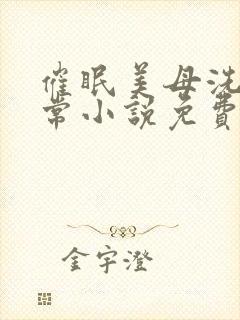 催眠美母洗
常小说免费
金宇澄